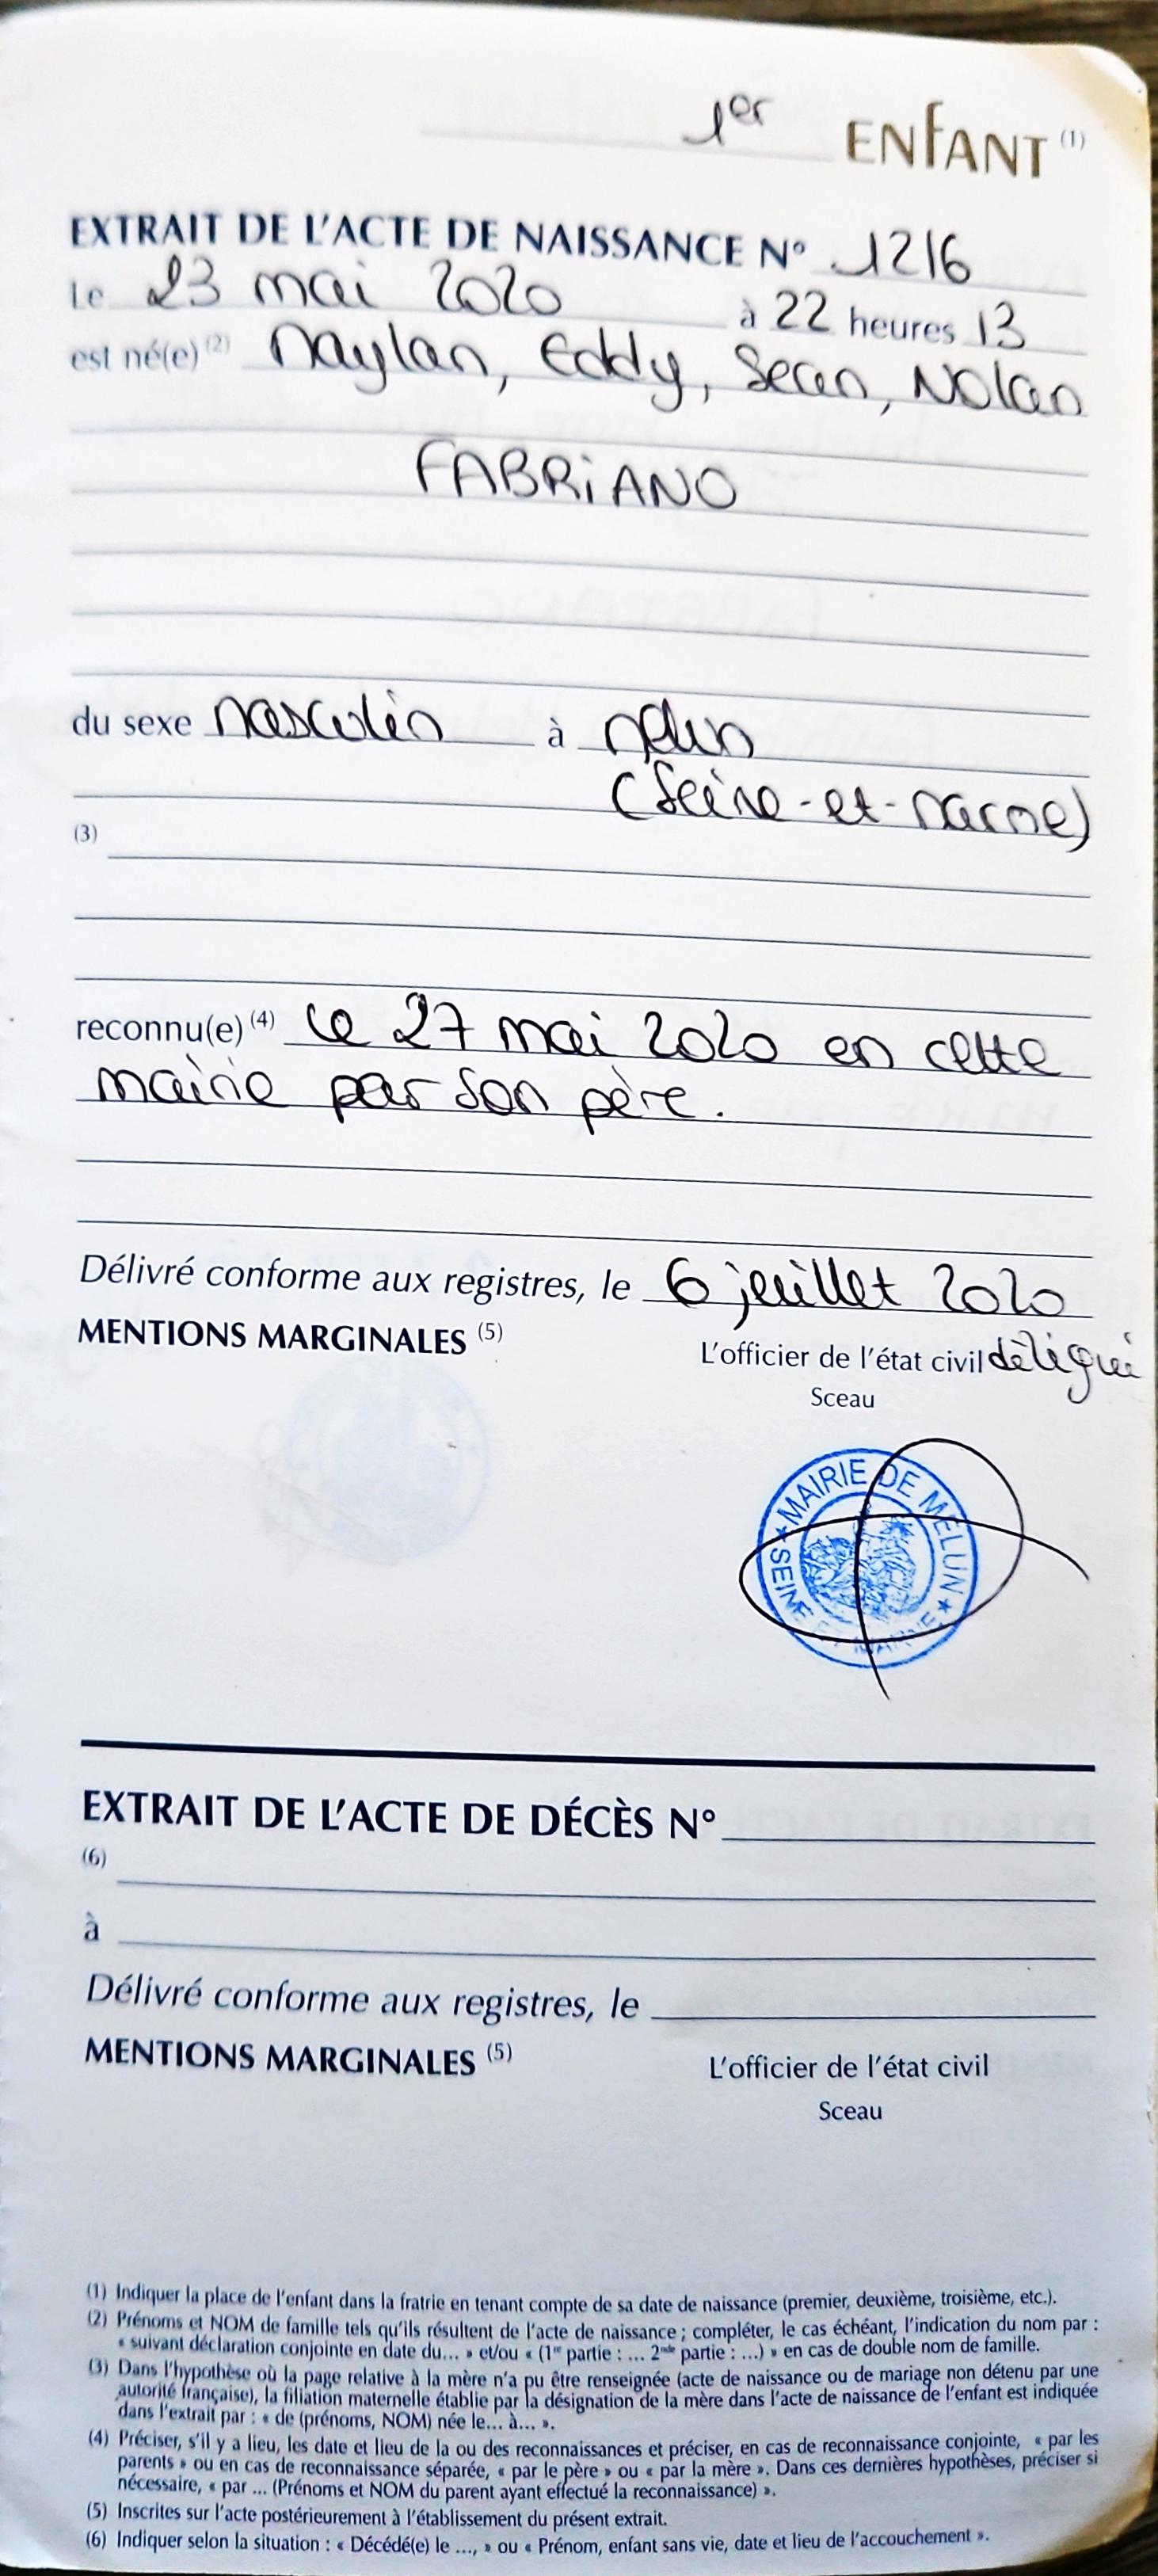 1er ENFANT (1)
EXTRAIT DE L'ACTE DE NAISSANCE N° 1216
Le 23 mai 2020 à 22 heures 13
est né(e) (2) Naylan, Eddy, Sean, Nolan
FABRiANO
du sexe Masculin à Melun
(Seine-et-Marne)
(3)
reconnu(e) (4) Le 27 mai 2020 en cette
mairie par son père.
Délivré conforme aux registres, le 6 juillet 2020
MENTIONS MARGINALES (5)
L'officier de l'état civil délégué
Sceau
MAIRIE DE MELUN
SEINE ET MARNE
EXTRAIT DE L'ACTE DE DÉCÈS N°
(6)
à
Délivré conforme aux registres, le
MENTIONS MARGINALES (5)
L'officier de l'état civil
Sceau
(1) Indiquer la place de l'enfant dans la fratrie en tenant compte de sa date de naissance (premier, deuxième, troisième, etc.).
(2) Prénoms et NOM de famille tels qu'ils résultent de l'acte de naissance ; compléter, le cas échéant, l'indication du nom par :
« suivant déclaration conjointe en date du... » et/ou « (1re partie : ... 2nde partie : ...) » en cas de double nom de famille.
(3) Dans l'hypothèse où la page relative à la mère n'a pu être renseignée (acte de naissance ou de mariage non détenu par une
autorité française), la filiation maternelle établie par la désignation de la mère dans l'acte de naissance de l'enfant est indiquée
dans l'extrait par : « de (prénoms, NOM) née le... à... ».
(4) Préciser, s'il y a lieu, les date et lieu de la ou des reconnaissances et préciser, en cas de reconnaissance conjointe, « par les
parents » ou en cas de reconnaissance séparée, « par le père » ou « par la mère ». Dans ces dernières hypothèses, préciser si
nécessaire, « par ... (Prénoms et NOM du parent ayant effectué la reconnaissance) ».
(5) Inscrites sur l'acte postérieurement à l'établissement du présent extrait.
(6) Indiquer selon la situation : « Décédé(e) le ..., » ou « Prénom, enfant sans vie, date et lieu de l'accouchement ».